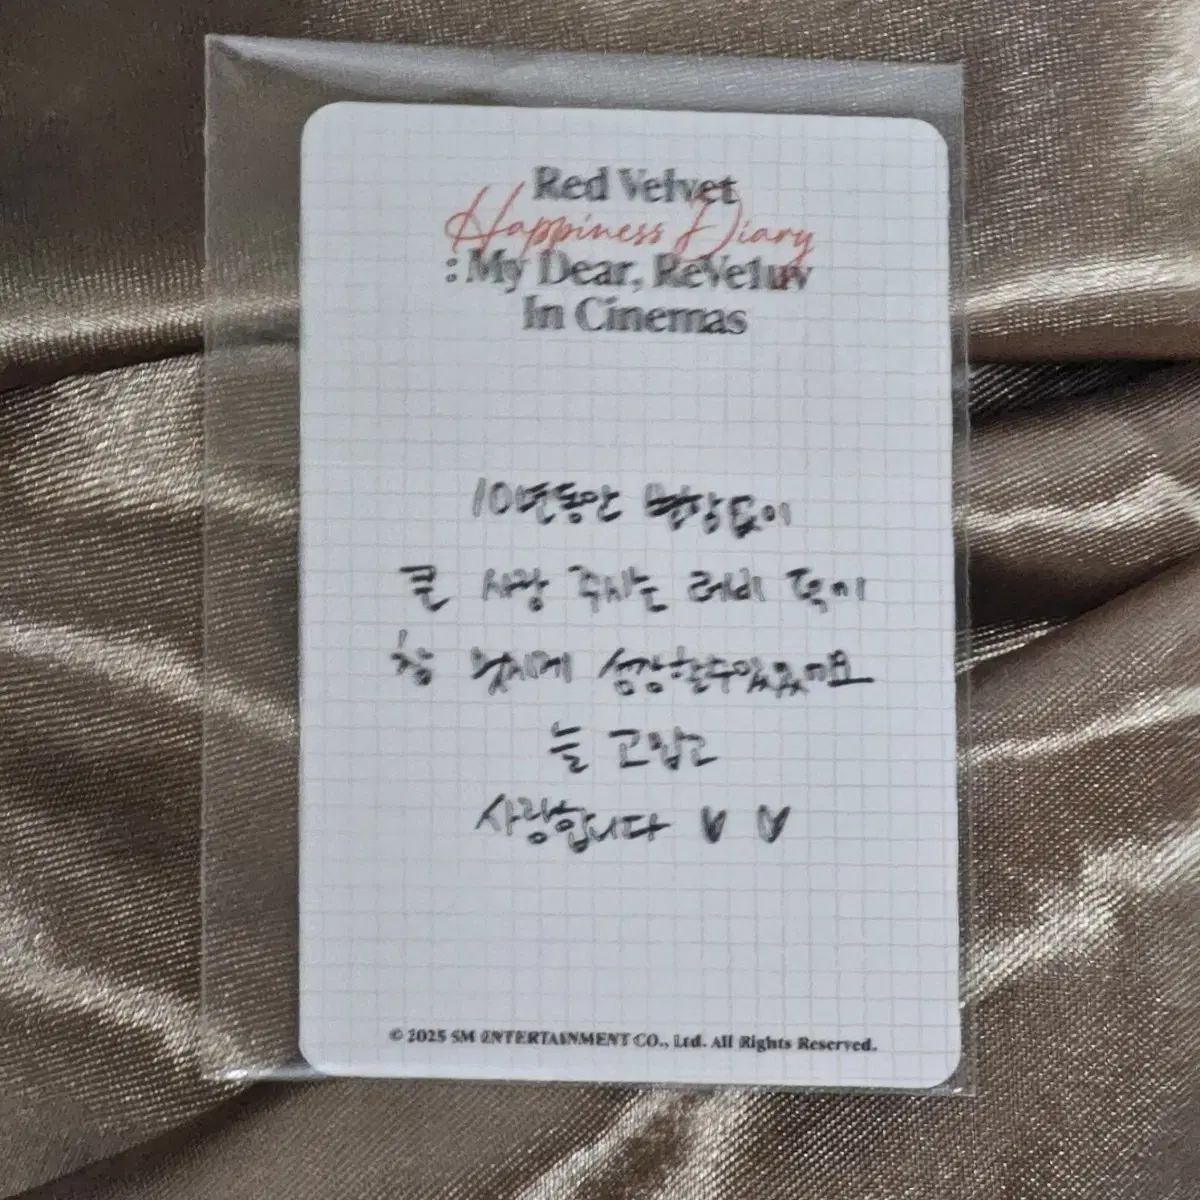 Red Velvet
Happiness Diary
: My Dear, ReVe1uv
In Cinemas
10년동안 변함없이
큰 사랑 주시는 러비 덕에
참 멋지게 성장할수있었어요
늘 고맙고
사랑합니다 ♥ ♥
© 2025 SM ENTERTAINMENT CO., Ltd. All Rights Reserved.